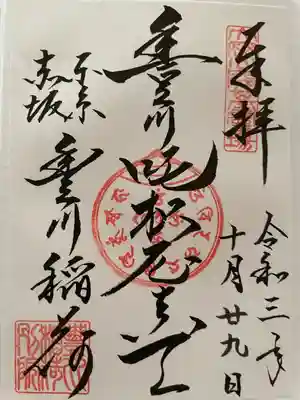 奉拝
令和三年
十月廿九日
豊川吒枳尼真天
東京
赤坂
豊川稲荷